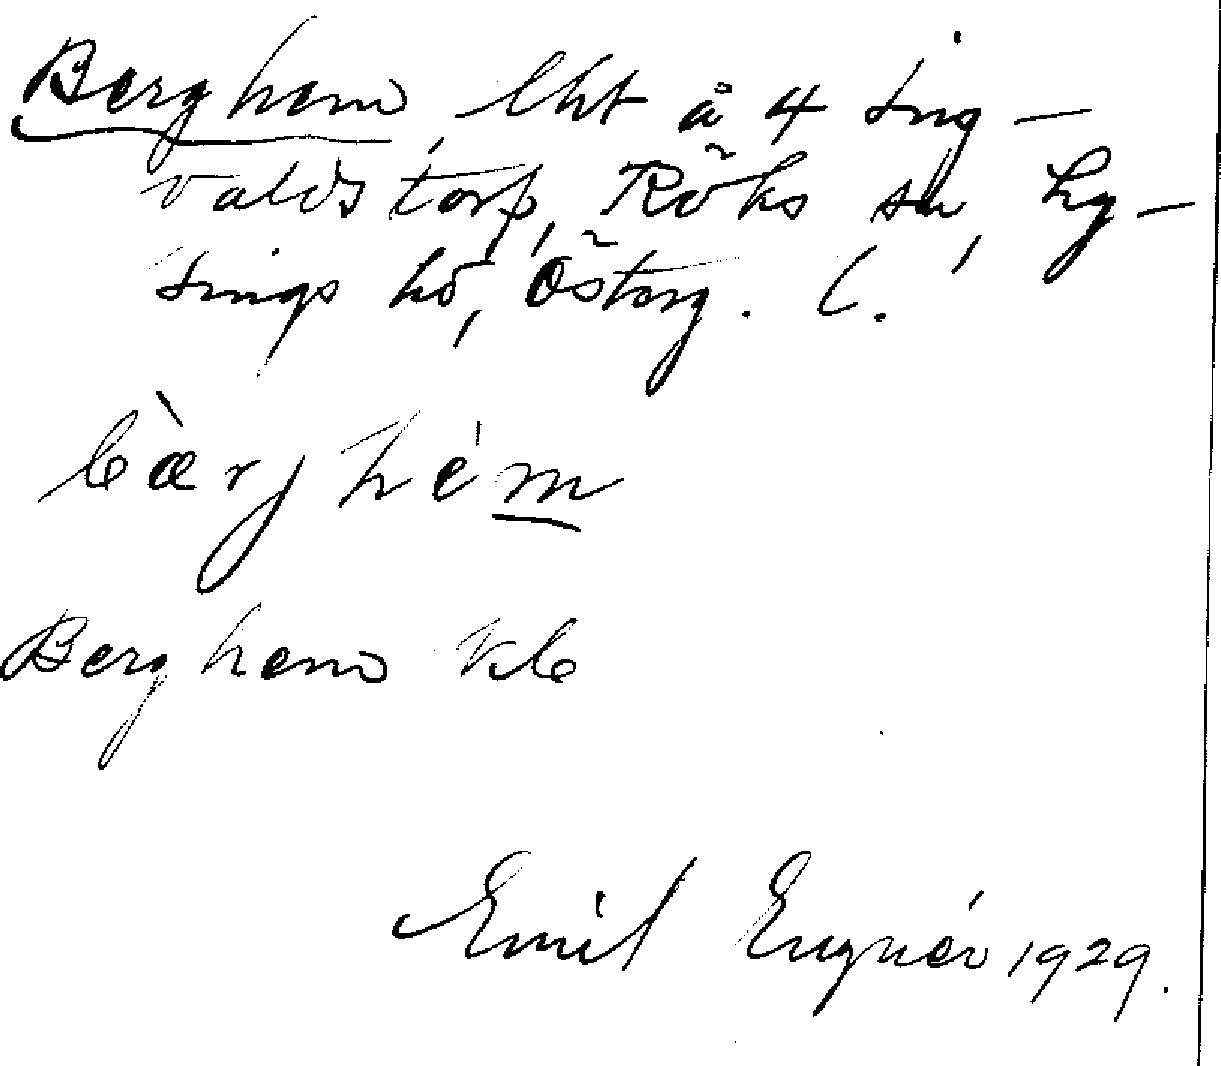 Berghem, lht å 4 Ing-
valdstorp, Röks sn, Ly-
sings hd, Östorg. l.
bæ̀rjhém
Berghem Kb
Emil Engnér 1929.